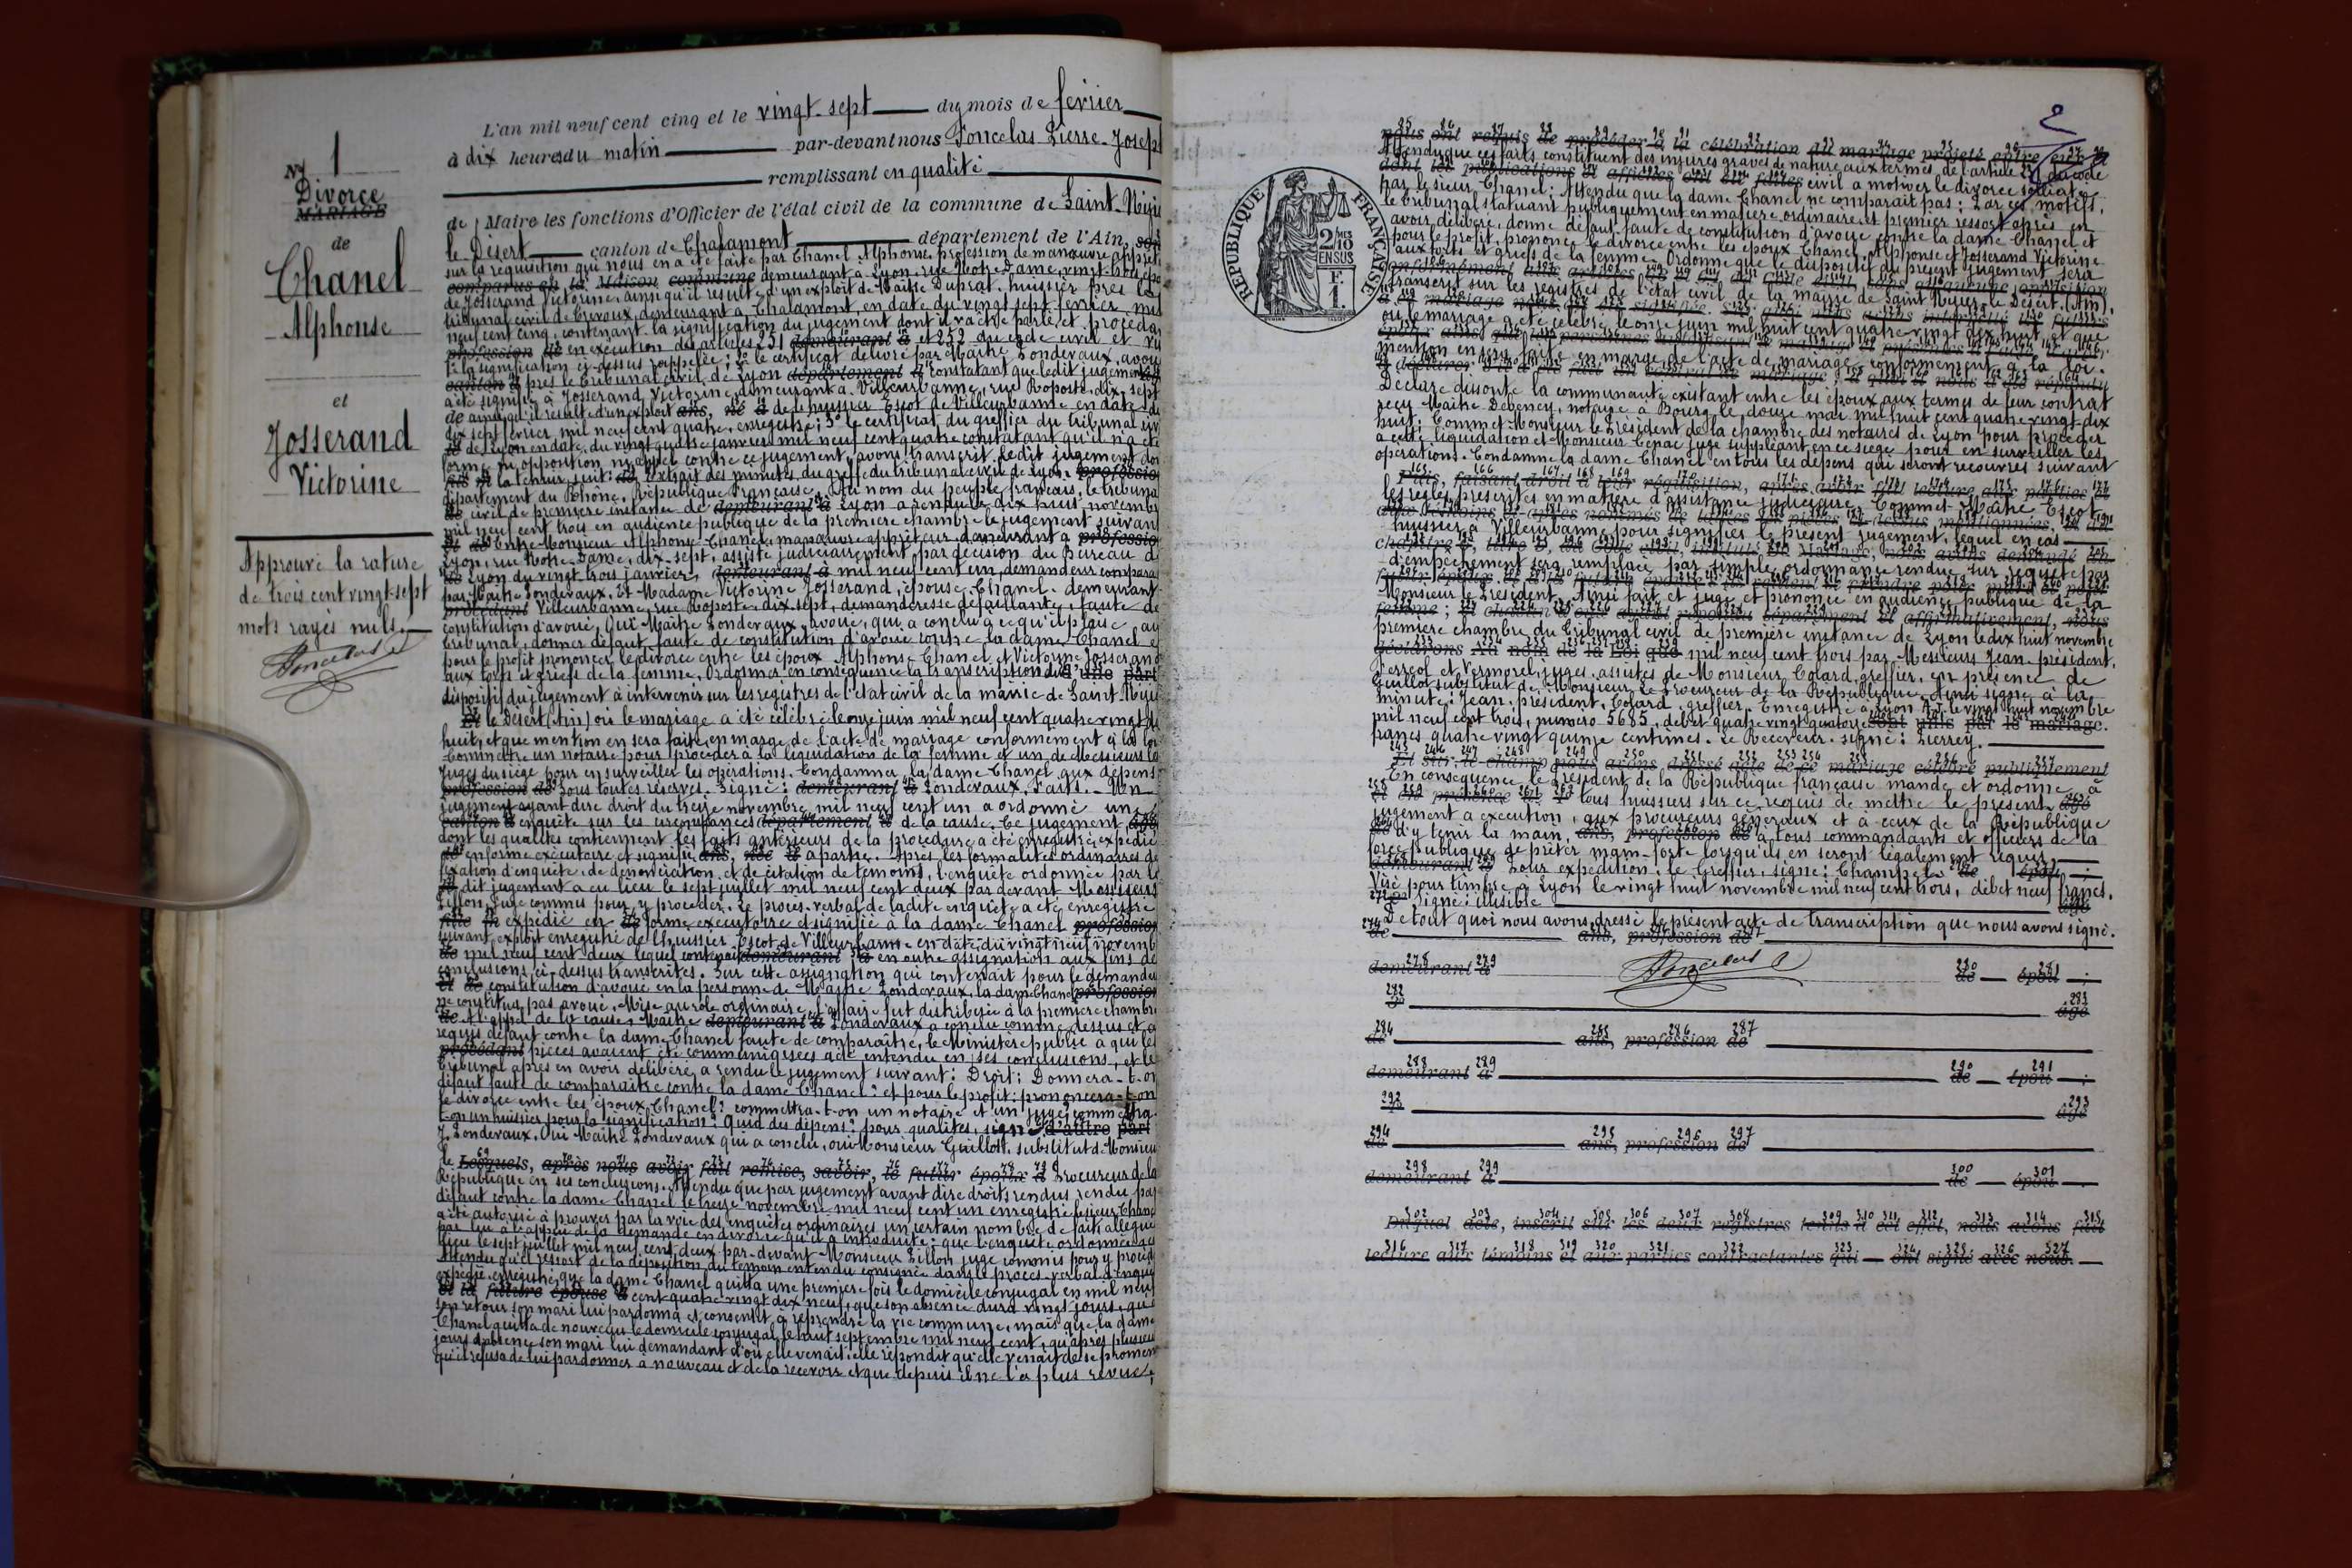 N° 1
Divorce
MARIAGE
de
Chanel
Alphonse
et
Josserand
Victorine
Approuvé la rature
de trois cent vingt-sept
mots rayés nuls.
L'an mil neuf cent cinq et le vingt-sept du mois de février
à dix heures du matin par-devant nous Poncelas Pierre-Joseph
remplissant en qualité
de Maire les fonctions d'Officier de l'état civil de la commune de Saint-Nizier
le Désert canton de Chalamont département de l'Ain,
sur la réquisition qui nous en a été faite par Chanel Alphonse, profession de manœuvre
demeurant à Lyon, rue Notre-Dame, vingt-trois,
de Josserand Victorine, ainsi qu'il résulte d'un exploit de Maître Duprat, huissier près le
tribunal civil de Trévoux, demeurant à Chalamont, en date du vingt sept février, mil
neuf cent cinq, contenant la signification du jugement dont il va être parlé, et procédan
en exécution des articles 251 et 252 du code civil et vu
1° la signification ci-dessus rappelée; 2° le certificat délivré par Maître Londervaux, avoué
près le tribunal civil de Lyon constatant que ledit jugement
a été signifié à Josserand Victorine, demeurant à Villeurbanne, rue Roposte, dix-sept
ainsi qu'il résulte d'un exploit de l'huissier Escot de Villeurbanne en date du
dix sept février mil neuf cent quatre, enregistré; 3° le certificat du greffier du tribunal civ
de Lyon en date du vingt quatre janvier mil neuf cent quatre constatant qu'il n'a été
formé ni opposition ni appel contre ce jugement, avons transcrit ledit jugement don
la teneur suit: Extrait des minutes du greffe du tribunal civil de Lyon
département du Rhône. République Française. Au nom du peuple français, le tribunal
civil de première instance de Lyon a rendu le dix huit novembre
mil neuf cent trois en audience publique de la première chambre le jugement suivant
Entre Monsieur Alphonse Chanel, manœuvre apprêteur, demeurant à
Lyon, rue Notre-Dame, dix-sept, assisté judiciairement par décision du Bureau d
Lyon du vingt trois janvier, mil neuf cent un, demandeur compara
par Maître Londervaux. Et Madame Victorine Josserand, épouse Chanel, demeurant
Villeurbanne, rue Roposte, dix-sept, demanderesse défaillante, faute de
constitution d'avoué, Oui Maître Londervaux, avoué, qui a conclu à ce qu'il plaise au
Tribunal, donner défaut faute de constitution d'avoué contre la dame Chanel e
pour le profit prononcer le divorce entre les époux Alphonse Chanel et Victorine Josserand
aux torts et griefs de la femme. Ordonner en conséquence la transcription du
dispositif du jugement à intervenir sur les registres de l'état civil de la mairie de Saint-Nizier
le Désert (Ain) où le mariage a été célébré le onze juin mil neuf cent quatre vingt di
huit, et que mention en sera faite, en marge de l'acte de mariage conformément à la loi
Commettre un notaire pour procéder à la liquidation de la femme et un de Messieurs les
Juges du siège pour en surveiller les opérations. Condamner la dame Chanel aux dépens
Sous toutes réserves. Signé: Londervaux. Faits. Un
jugement avant dire droit du treize novembre mil neuf cent un a ordonné une
enquête sur les circonstances de la cause. Ce jugement
dont les qualités contiennent les faits antérieurs de la procédure a été enregistré, expédié
en forme exécutoire et signifié à partie. Après les formalités ordinaires de
fixation d'enquête, de dénonciation, et de citation de témoins, l'enquête ordonnée par le
dit jugement a eu lieu le sept juillet mil neuf cent deux par devant Messieurs
Zillon, Juge commis pour y procéder. Le procès-verbal de ladite enquête a été enregistré
expédié en forme exécutoire et signifié à la dame Chanel
suivant exploit enregistré de l'huissier Escot de Villeurbanne en date du vingt neuf novemb
mil neuf cent deux lequel contenait en outre assignation aux fins de
conclusions ci-dessus transcrites. Sur cette assignation qui contenait pour le demandeu
constitution d'avoué en la personne de Maître Londervaux, la dame Chanel
ne constitua pas avoué. Mise au rôle ordinaire, l'affaire fut distribuée à la première chambre
A l'appel de la cause, Maître Londervaux a conclu comme dessus et a
requis défaut contre la dame Chanel faute de comparaître, le Ministère public à qui les
pièces avaient été communiquées a été entendu en ses conclusions, et le
Tribunal après en avoir délibéré a rendu le jugement suivant: Droit: Donnera-t-on
défaut faute de comparaître contre la dame Chanel? et pour le profit: prononcera-t-on
le divorce entre les époux Chanel? commettra-t-on un notaire et un juge, commettra
t-on un huissier pour la signification? Quid des dépens? pour qualités, signé
J. Londervaux. Oui Maître Londervaux qui a conclu, oui Monsieur Guillot, substitut de Monsieur
le Procureur de la
République en ses conclusions. Attendu que par jugement avant dire droit rendu par
défaut contre la dame Chanel le treize novembre mil neuf cent un enregistré le sieur Chanel
a été autorisé à prouver par la voie des enquêtes ordinaires un certain nombre de faits allégués
par lui à l'appui de la demande en divorce qu'il a introduite; que l'enquête ordonnée a eu
lieu le sept juillet mil neuf cent deux par-devant Monsieur Zillon juge commis pour y procéd
Attendu qu'il ressort de la déposition du témoin entendu consignée dans le procès-verbal d'enquê
expédié, enregistré, que la dame Chanel quitta une première fois le domicile conjugal en mil neuf
cent quatre vingt dix neuf, que son absence dura vingt jours, qu'à
son retour son mari lui pardonna et consentit à reprendre la vie commune, mais que la dame
Chanel quitta de nouveau le domicile conjugal le huit septembre mil neuf cent, qu'après plusieurs
jours d'absence son mari lui demandant d'où elle venait, elle répondit qu'elle venait de se promen
qu'il refusa de lui pardonner à nouveau et de la recevoir et que depuis il ne l'a plus revue;
2
RÉPUBLIQUE FRANÇAISE
2/10 EN SUS
F. 1.
nous ont requis de procéder à la célébration du mariage projeté entre eux et
Attendu que ces faits constituent des injures graves de nature aux termes de l'article 231 du code
dont les publications et affiches ont été faites civil à motiver le divorce sollicité
par le sieur Chanel: Attendu que la dame Chanel ne comparaît pas: Par ces motifs,
le tribunal statuant publiquement en matière ordinaire et premier ressort après en
avoir délibéré, donne défaut faute de constitution d'avoué contre la dame Chanel et
pour le profit, prononce le divorce entre les époux Chanel Alphonse et Josserand Victorine
aux torts et griefs de la femme. Ordonne que le dispositif du présent jugement sera
transcrit sur les registres de l'état civil de la mairie de Saint Nizier-le-Désert (Ain),
où le mariage a été célébré le onze juin mil huit cent quatre-vingt dix huit et que
mention en sera faite en marge de l'acte de mariage, conformément à la loi.
Déclare dissoute la communauté existant entre les époux aux termes de leur contrat
reçu Maître Debeney, notaire à Bourg le douze mai mil huit cent quatre-vingt-dix
huit; Commet Monsieur le Président de la chambre des notaires de Lyon pour procéder
à cette liquidation et Monsieur Cépac juge suppléant en ce siège pour en surveiller les
opérations. Condamne la dame Chanel en tous les dépens qui seront recouvrés suivant
Puis, faisant droit à leur réquisition, après avoir fait lecture aux parties et
les règles prescrites en matière d'assistance judiciaire. Commet Maître Escot
huissier à Villeurbanne, pour signifier le présent jugement, lequel en cas
d'empêchement sera remplacé par simple ordonnance rendue sur requête par
Monsieur le Président. Ainsi fait et jugé et prononcé en audience publique de la
première chambre du Tribunal civil de première instance de Lyon le dix huit novembre
mil neuf cent trois par Messieurs Jean, président,
Ferréol et Vermorel, juges, assistés de Monsieur Colard, greffier, en présence de
Guillot substitut de Monsieur le Procureur de la République. Ainsi signé à la
minute: Jean, président, Colard, greffier. Enregistré à Lyon A.J. le vingt huit novembre
mil neuf cent trois, numéro 5685, débet quatre vingt quatorze sont unis par le mariage.
francs quatre vingt quinze centimes. Le Receveur. signé: Pierrey.
Et sur-le-champ nous avons dressé acte de ce mariage célébré publiquement
En conséquence le président de la République française mande et ordonne à
tous huissiers sur ce requis de mettre le présent
jugement à exécution, aux procureurs généraux et à ceux de la République
d'y tenir la main, ans, profession de à tous commandants et officiers de la
force publique de prêter main-forte lorsqu'ils en seront légalement requis,
demeurant à Pour expédition: Le Greffier, signé: Champel. de épou ;
Visé pour timbre à Lyon le vingt huit novembre mil neuf cent trois, débet neuf francs.
Signé: illisible âgé
De tout quoi nous avons dressé le présent acte de transcription que nous avons signé.
de ans, profession de
278 279 280 281
demeurant à de épou ;
282 283
âgé
284 285 286 287
de ans, profession de
288 289 290 291
demeurant à de épou ;
292 293
âgé
294 295 296 297
de ans, profession de
298 299 300 301
demeurant à de épou
302 303 304 305 306 307 308 309 310 311 312 313 314 315
Duquel acte, inscrit sur les deux registres tenus à cet effet, nous avons fait
316 317 318 319 320 321 322 323 324 325 326 327
lecture aux témoins et aux parties contractantes qui ont signé avec nous.